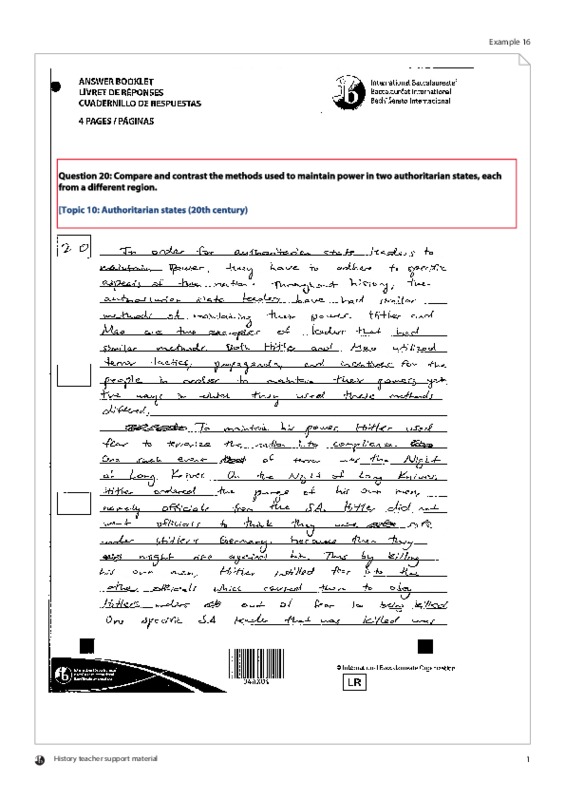 Example 16
ANSWER BOOKLET
LIVRET DE RÉPONSES
CUADERNILLO DE RESPUESTAS
4 PAGES / PÁGINAS
International Baccalaureate
Baccalauréat International
Bachillerato Internacional
Question 20: Compare and contrast the methods used to maintain power in two authoritarian states, each
from a different region.
[Topic 10: Authoritarian states (20th century)
20
In order for authoritarian state leaders to
maintain power, they have to adhere to specific
aspects of the nation. Throughout history, the
authoritarian state leaders have had similar
methods of maintaining their power. Hitler and
Mao are two examples of leaders that had
similar methods. Both Hitler and Mao utilized
terror tactics, propaganda, and incentives for the
people in order to maintain their powers yet
the ways in which they used these methods
differed.
To maintain his power Hitler used
fear to terrorize the nation into compliance.
One such event of terror was the Night
of Long Knives. On the Night of Long Knives,
Hitler ordered the purge of his own men,
namely officials from the SA. Hitler did not
want officials to think they were safe
under Hitler's Germany, because then they
might rise against him. Thus by killing
his own men, Hitler instilled fear into the
other officials which caused them to obey
Hitlers orders out of fear to being killed
One specific SA leader that was killed was
International Baccalaureate
04AX04
© International Baccalaureate Organization
LR
History teacher support material
1